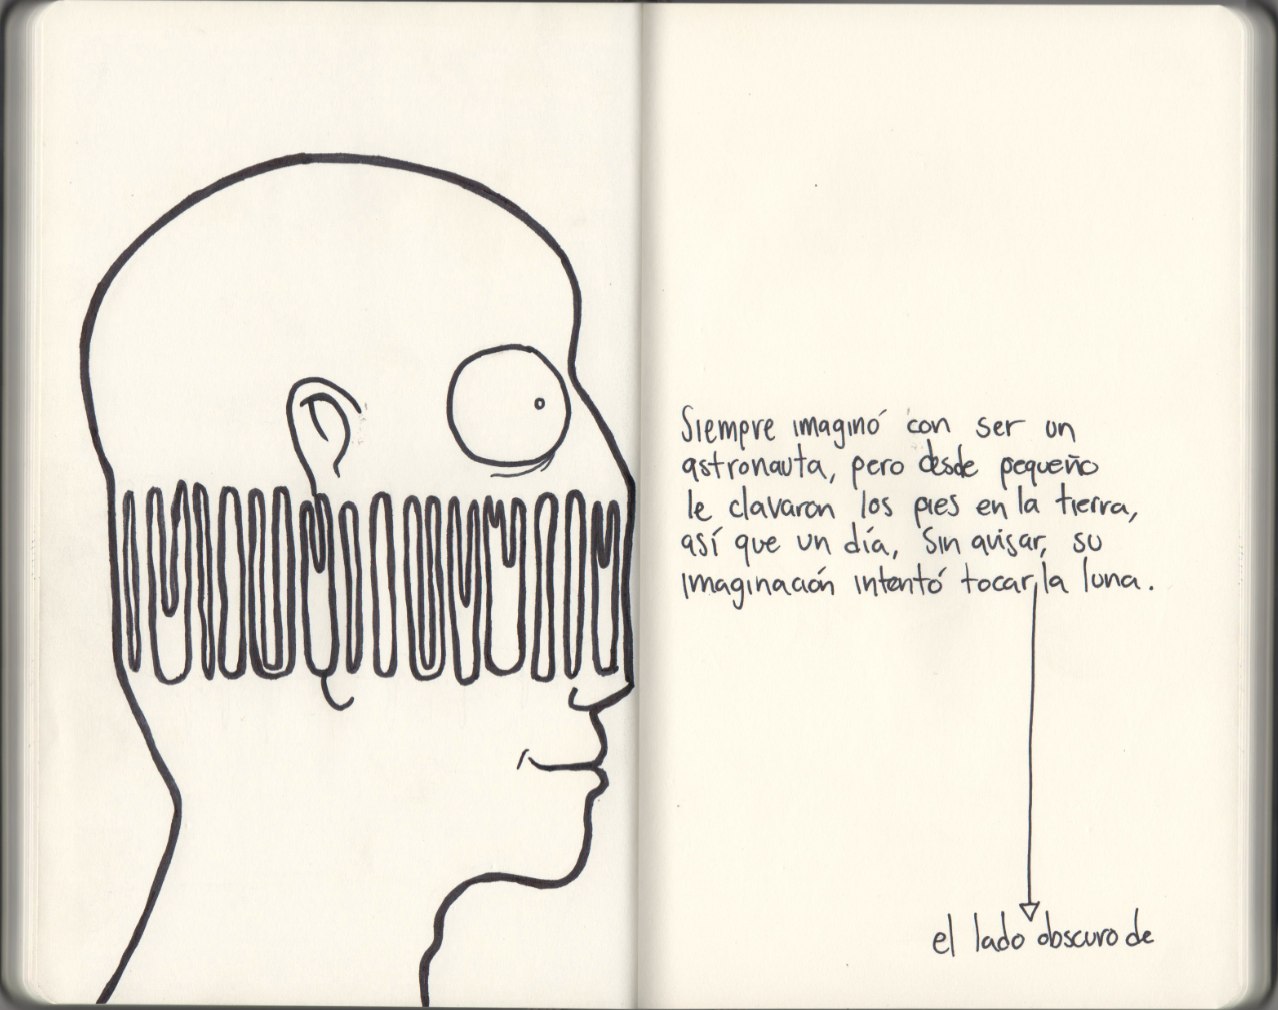 Siempre imaginó con ser un
astronauta, pero desde pequeño
le clavaron los pies en la tierra,
así que un día, sin avisar, su
imaginación intentó tocar la luna.
el lado obscuro de